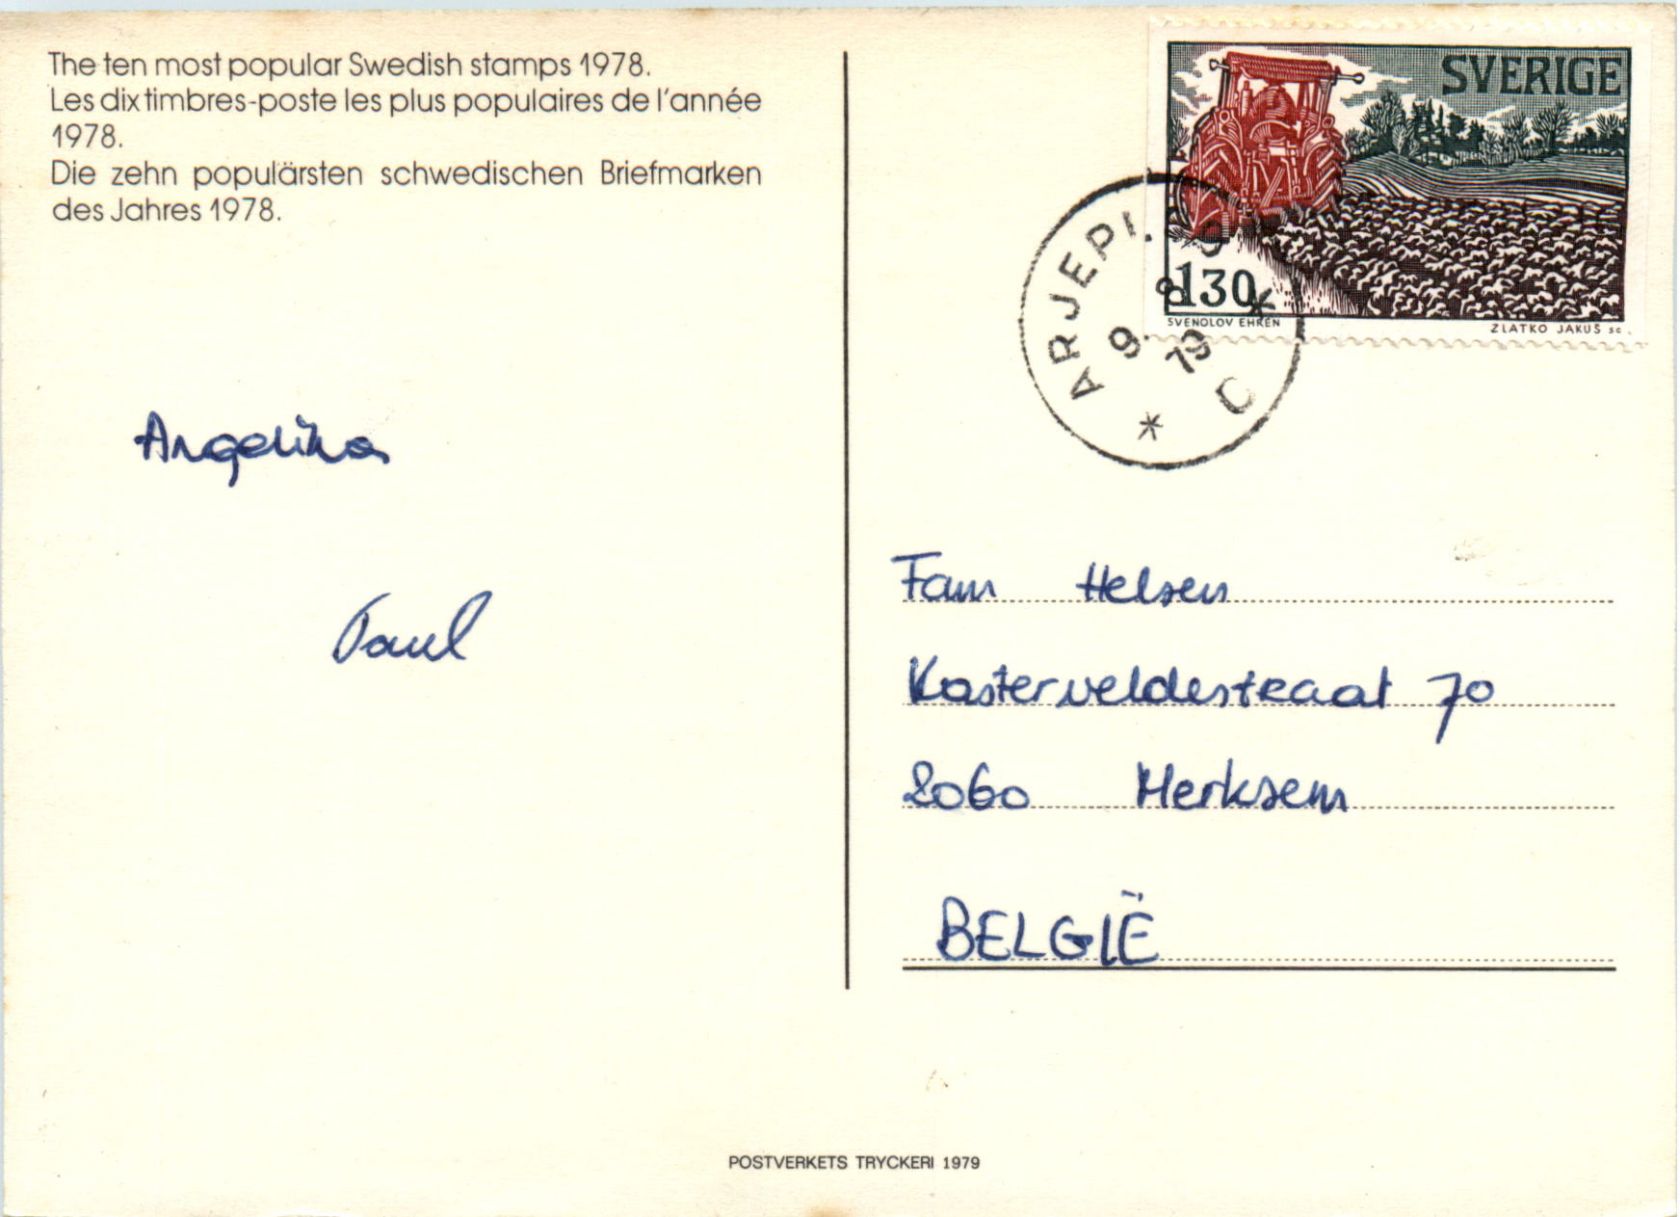 The ten most popular Swedish stamps 1978.
Les dix timbres-poste les plus populaires de l'année
1978.
Die zehn populärsten schwedischen Briefmarken
des Jahres 1978.
Angelina
Paul
SVERIGE
130
SVENOLOV EHRÉN
ZLATKO JAKUŠ sc.
ARJEPL
9. 8
79
D
Fam Helsen
Kasterveldestraat 70
2060 Merksem
BELGIË
POSTVERKETS TRYCKERI 1979